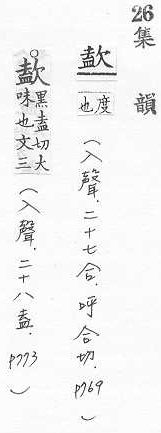 26
集韻
度也(入聲.二十七合.呼合切.p769)
黑盍切大
味也文三
(入聲.二十八盍.p773)